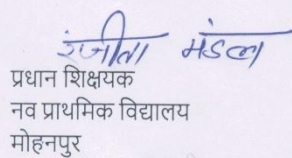 रंजीता मंडल
प्रधान शिक्षयक
नव प्राथमिक विद्यालय
मोहनपुर